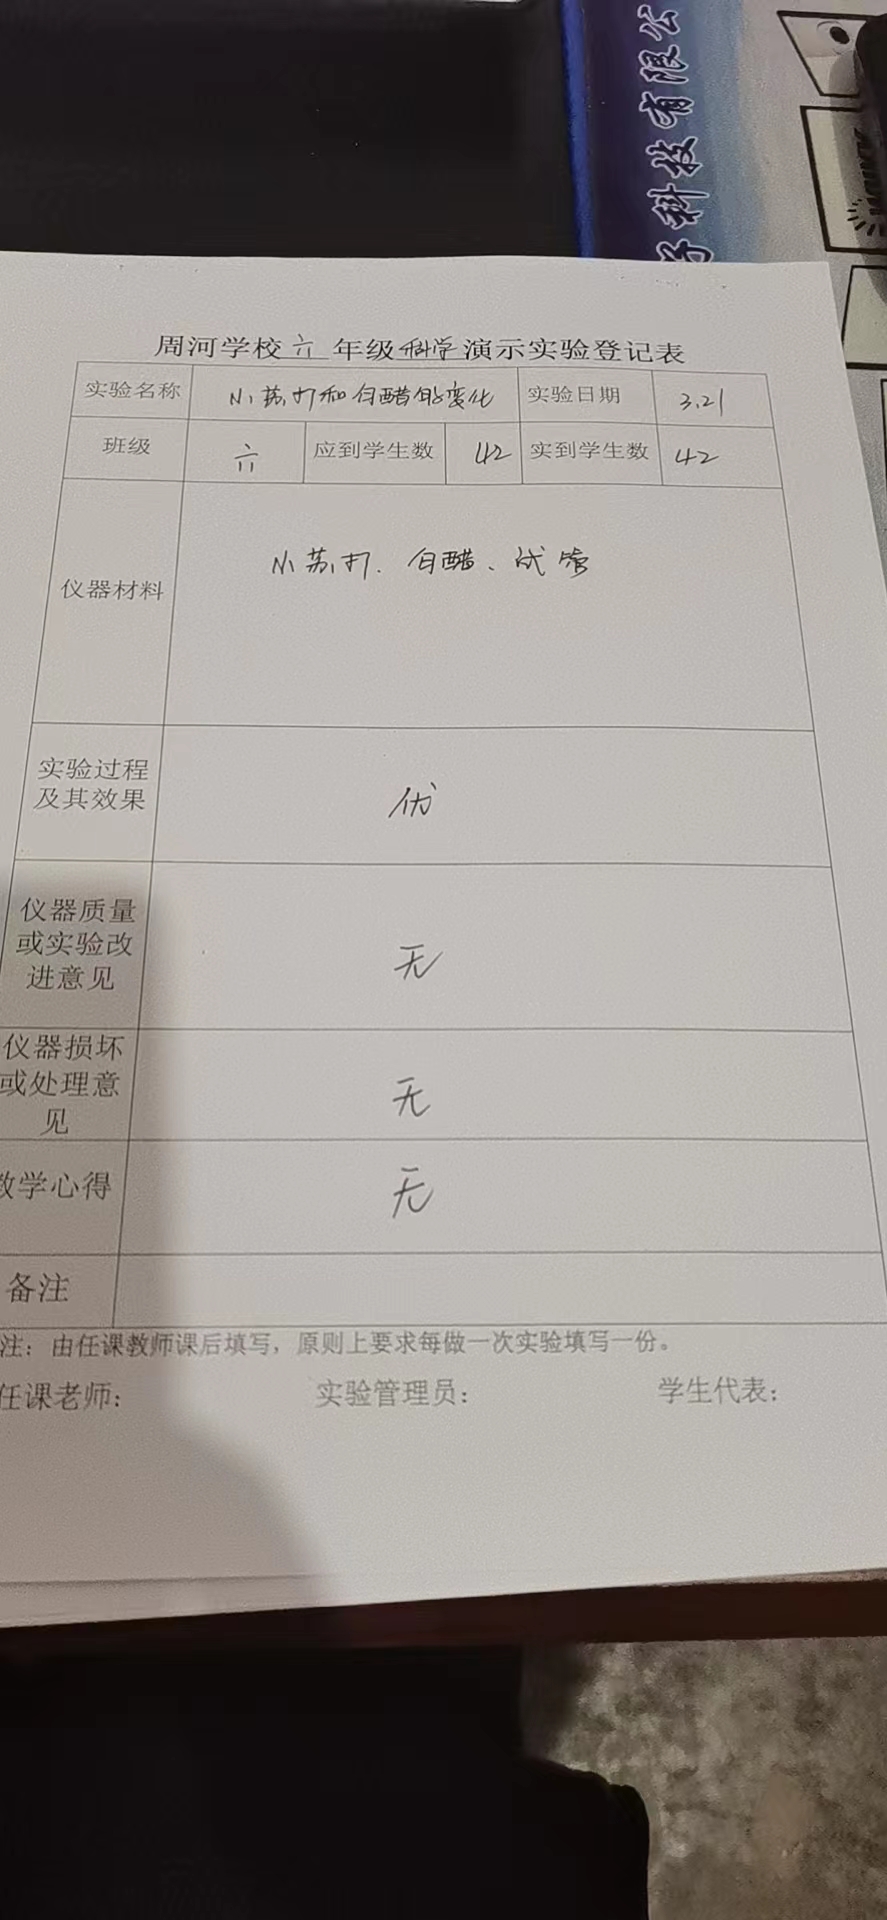 科技有限公
周河学校 六 年级 科学 演示实验登记表
实验名称 小苏打和白醋的变化 实验日期 3.21
班级 六 应到学生数 42 实到学生数 42
仪器材料 小苏打、白醋、试管
实验过程
及其效果 优
仪器质量
或实验改
进意见 无
仪器损坏
或处理意
见 无
教学心得 无
备注
注：由任课教师课后填写，原则上要求每做一次实验填写一份。
任课老师： 实验管理员： 学生代表：